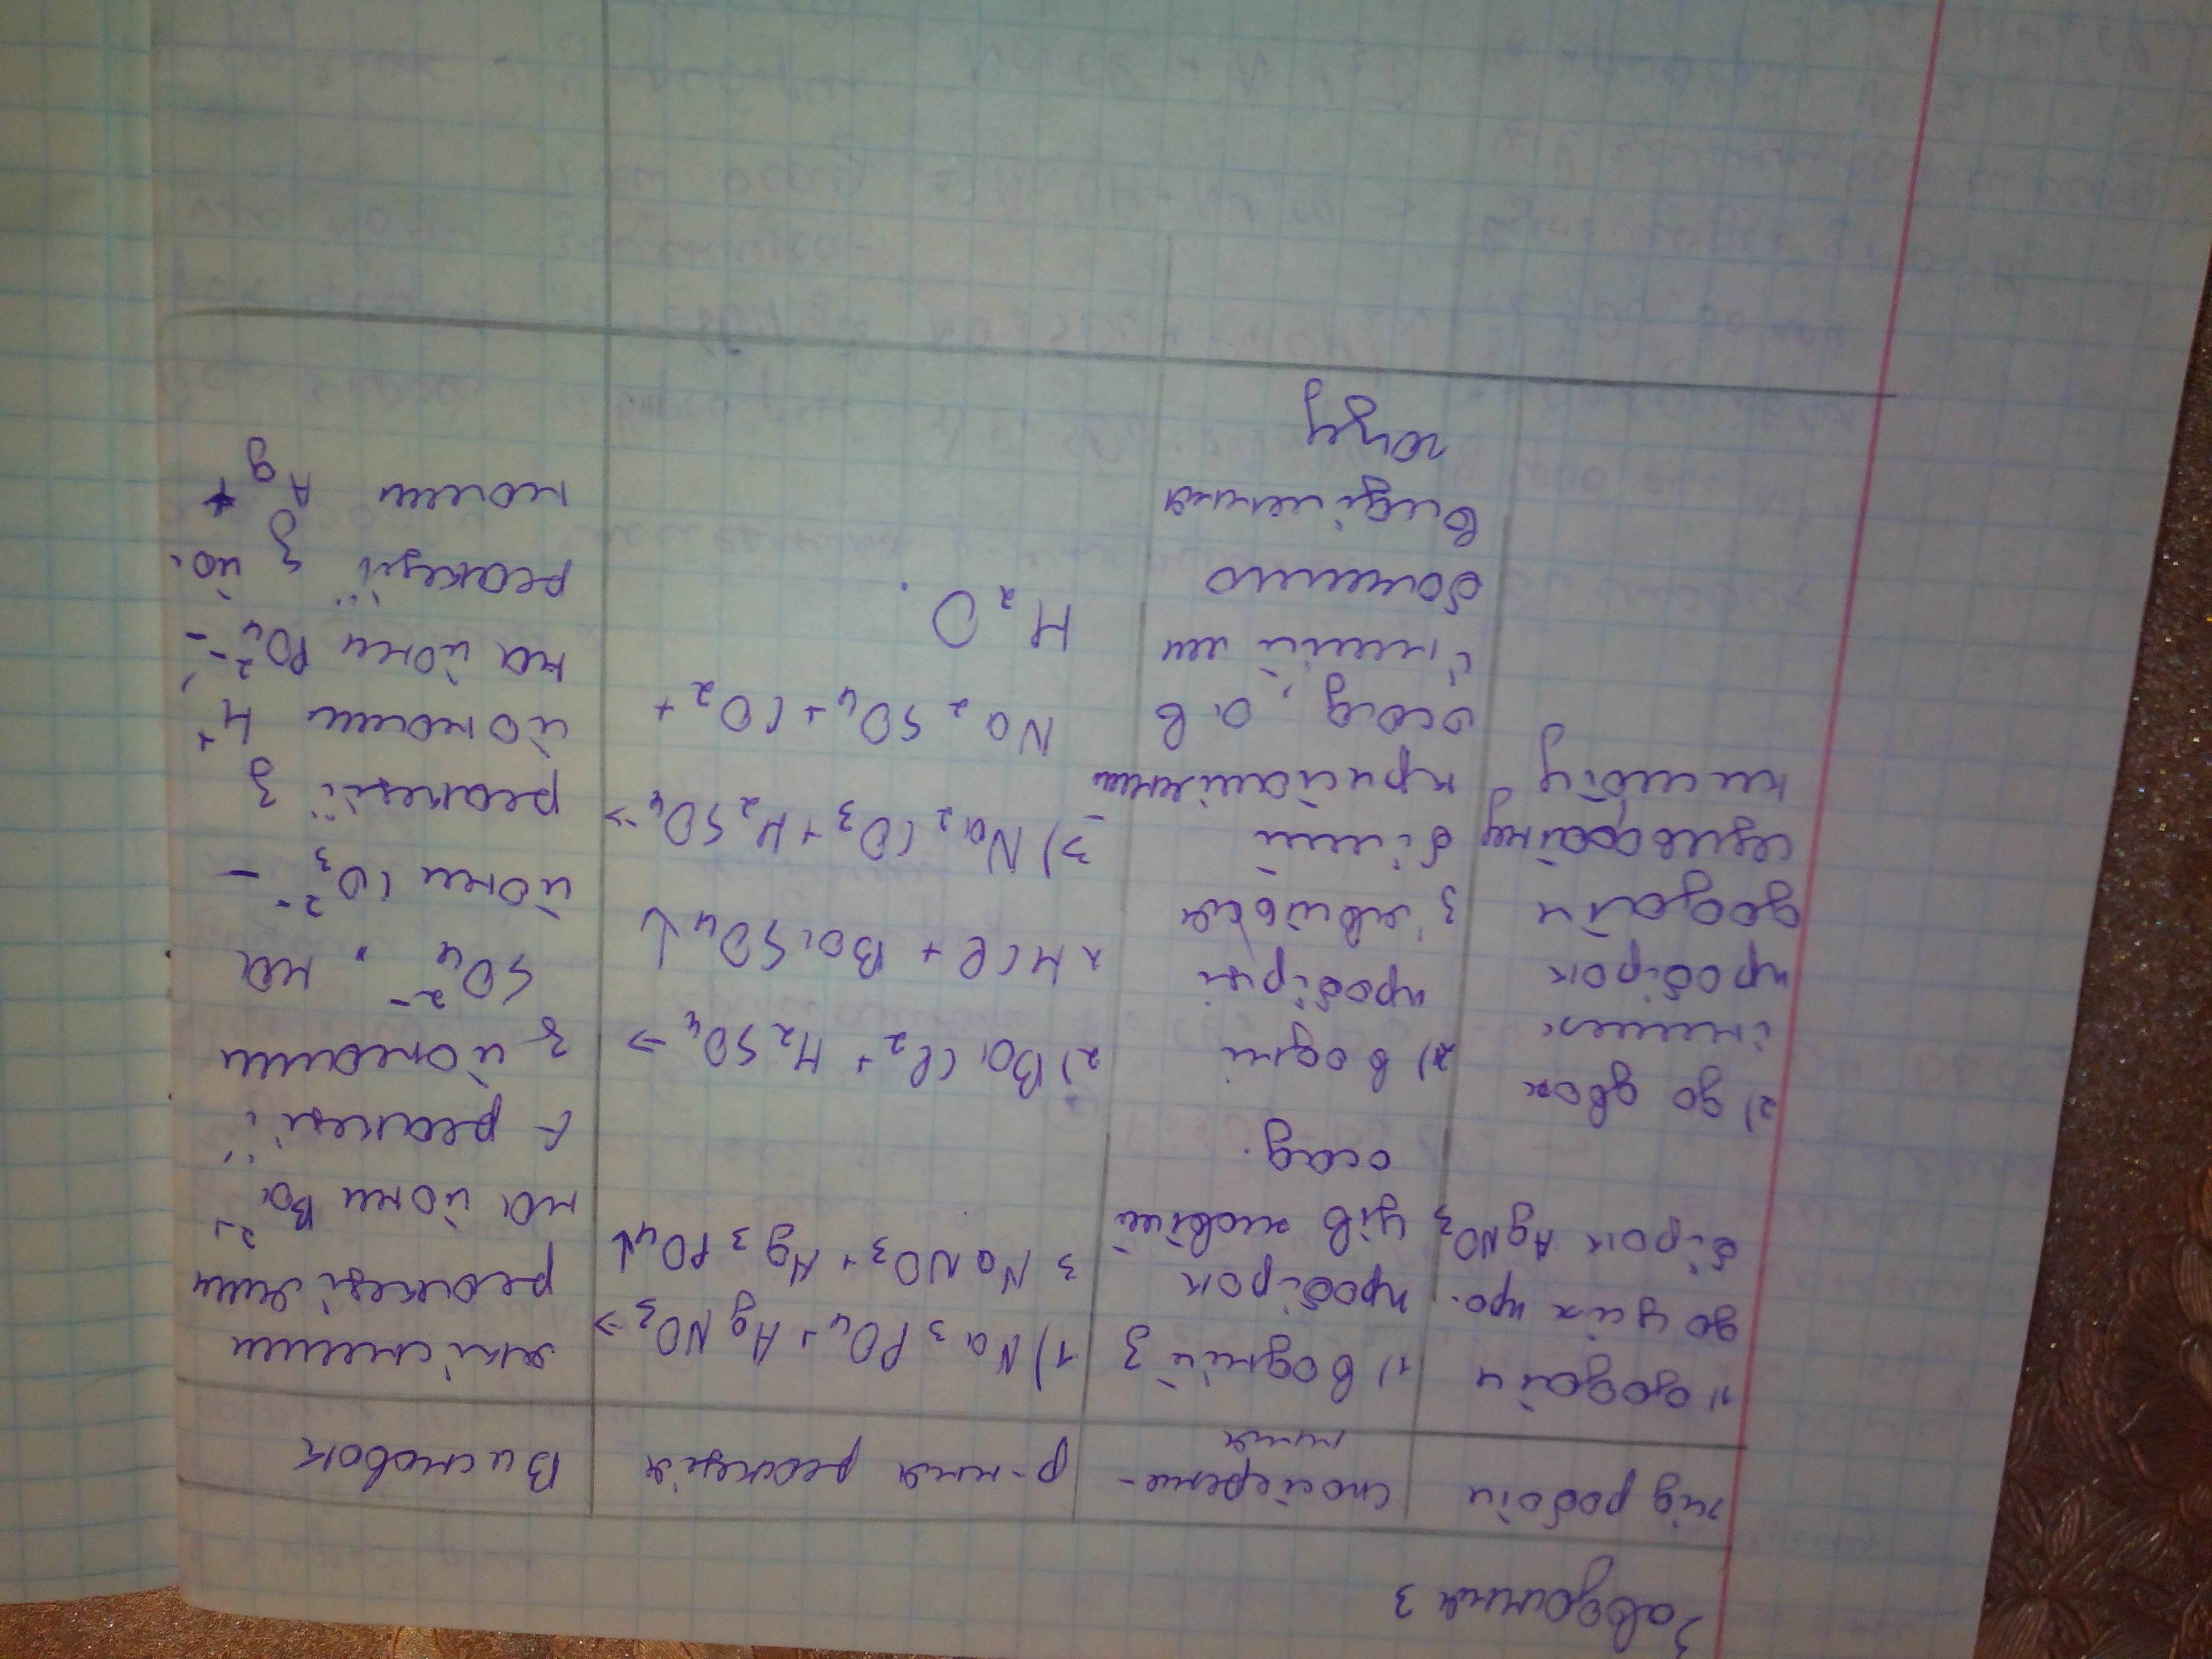 Завдання 3
хід роботи
спостереже-
ння
р-ння реакція
Висновок
1) додати
до цих про-
бірок AgNO3
2) до двох
інших
пробірок
додати
сульфатну
кислоту
1) в одній з
пробірок
ців жовтий
осад.
2) в одній
пробірці
з'явився
білий
кристалічний
осад, а в
іншій ми
бачимо
виділення
газу
1) Na3PO4 + AgNO3 →
3NaNO3 + Ag3PO4↓
2) BaCl2 + H2SO4 →
2HCl + BaSO4↓
3) Na2CO3 + H2SO4 →
Na2SO4 + CO2 +
H2O
якісними
реакціями
на йони Ba2+
є реакції
з йонами
SO4 2-, на
йони CO3 2- -
реакції з
йонами H+,
на йони PO4 2- -
реакції з йо-
нами Ag+